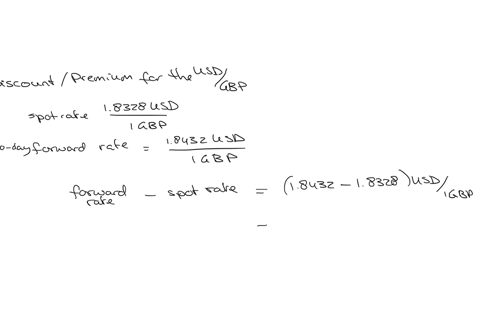 iscount / Premium for the USD/GBP
spot rate 1.8328 USD / 1 GBP
0-day forward rate = 1.8432 USD / 1 GBP
forward rate - spot rate = (1.8432 - 1.8328) USD / 1 GBP
=